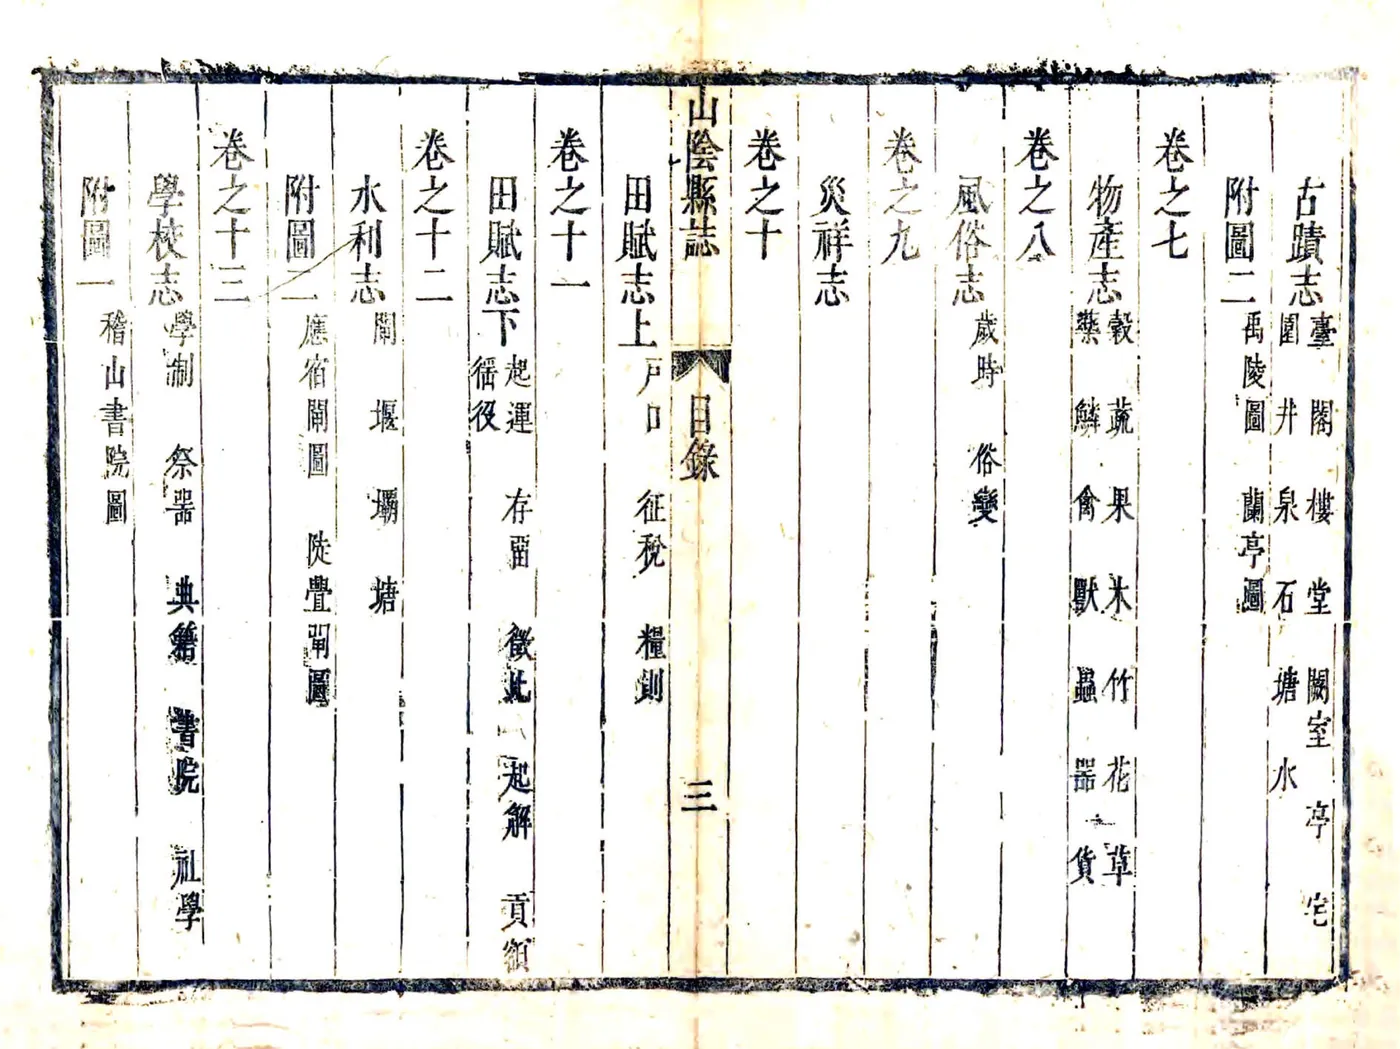 古蹟志 臺 閣 樓 堂 闕 室 亭 宅
園 井 泉 石 塘 水
附圖二 禹陵圖 蘭亭圖
卷之七
物產志 穀 蔬 果 木 竹 花 草
藥 鱗 禽 獸 蟲 器 貨
卷之八
風俗志 歲時 俗變
卷之九
災祥志
卷之十
山陰縣誌 目錄 三
田賦志上 戶口 征稅 糧則
卷之十一
田賦志下 起運 存留 徵 起解 貢額
徭役
卷之十二
水利志 閘 堰 壩 塘
附圖二 應宿閘圖 陡亹閘圖
卷之十三
學校志 學制 祭器 典籍 書院 社學
附圖一 稽山書院圖